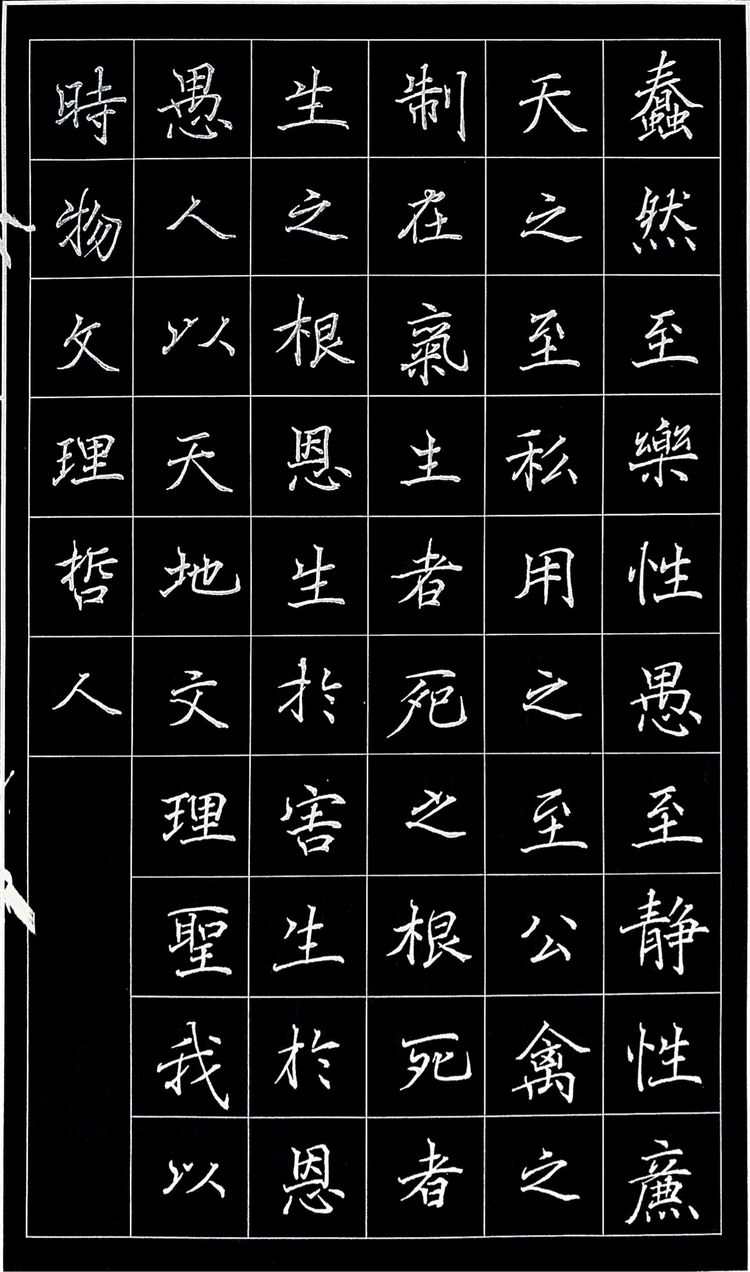 蠢然至樂性愚至静性廉
天之至私用之至公禽之
制在氣生者死之根死者
生之根恩生於害生於恩
愚人以天地文理聖我以
時物文理哲人